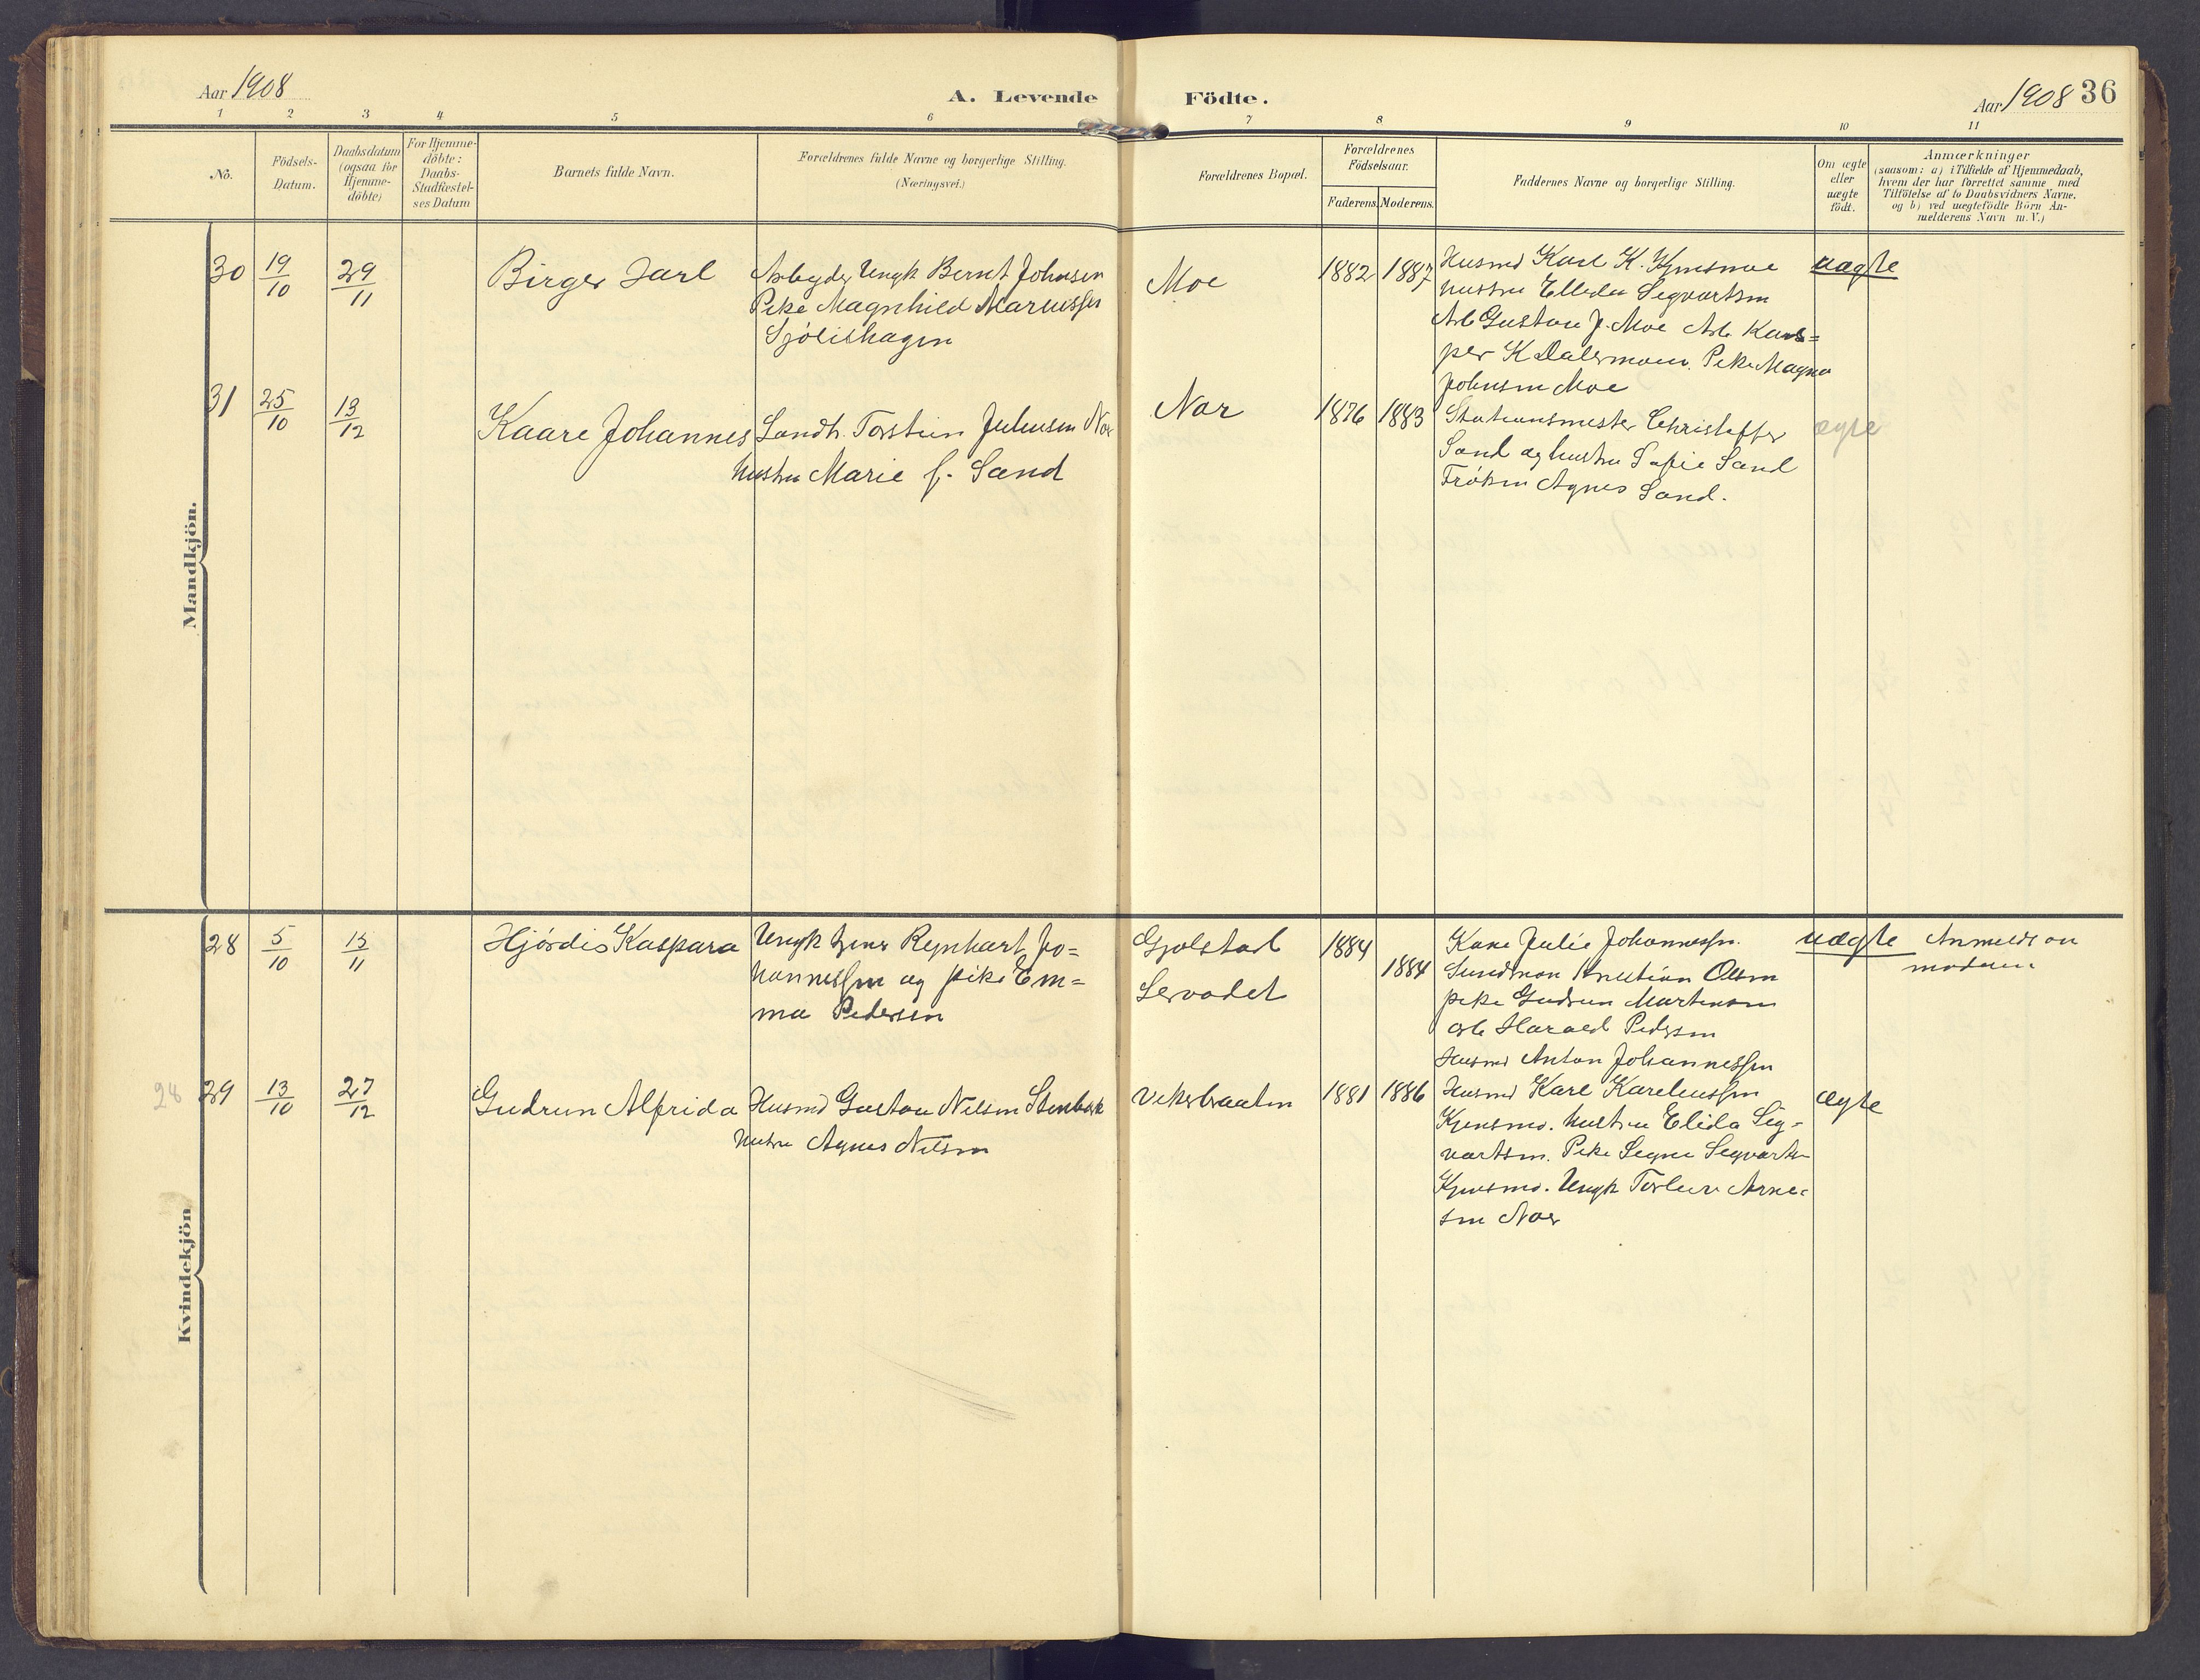 Aar 1908
A. Levende Födte.
Aar 1908 36
1 2 3 4 5 6 7 8 9 10 11
No.
Födsels-
Datum.
Daabsdatum
(ogsaa for
Hjemme-
döbte)
For Hjemme-
döbte:
Daabs-
Stadfæstel-
ses Datum
Barnets fulde Navn.
Forældrenes fulde Navne og borgerlige Stilling.
(Næringsvei.)
Forældrenes Bopæl.
Forældrenes
Födselsaar.
Faderens. Moderens.
Faddernes Navne og borgerlige Stilling.
Om ægte
eller
uægte
födt.
Anmærkninger
(saasom: a) i Tilfælde af Hjemmedaab,
hvem der har forrettet samme med
Tilföielse af to Daabsvidners Navne,
og b) ved uægtefödte Börn An-
melderens Navn m. V.)
Mandkjön.
30
19/10
29/11
Birger Jarl
Arbeyder Ungk Bernt Johnsen
Pike Magnhild Mariussen
Sjölishagen
Moe
1882 1887
Husmd Karl K. Kjensmoe
hustru Ellida Segvartsen
Arb Gustav J. Moe Arb Kas=
per K Dalermoen. Pike Magna
Johnsen Moe
uægte
31
25/10
13/12
Kaare Johannes
Landh. Torstein Juliusen Nor
hustru Marie f. Sand
Nor
1876 1883
Stationsmester Christoffer
Sand og hustru Sofie Sand
Fröken Agnes Sand.
ægte
Kvindekjön
28
5/10
15/11
Hjördis Kaspara
Ungk Reynhart Jo=
hannessen og pike Em=
ma Pedersen
Gjolstad
1884
1884
Kone Julie Johannessen.
Sundman Kristian Olsen
pike Gudrun Martinsen
arb Harald Pedersen
Husmd Anton Johannessen
uægte
Anmeldt av
moderen
28 29
13/10
27/12
Gudrun Alfrida
Husmd Gustav Nilsen Stenbæk
hustru Agnes Nilsen
Vikerbraaten
1881 1886
Husmd Karl Kareliussen
Kjensmo. hustru Elida Sig-
vartsen. Pike Segne Segvarts-
Kjensmo. Ungk Torleiv Arne=
sen Nor
ægte